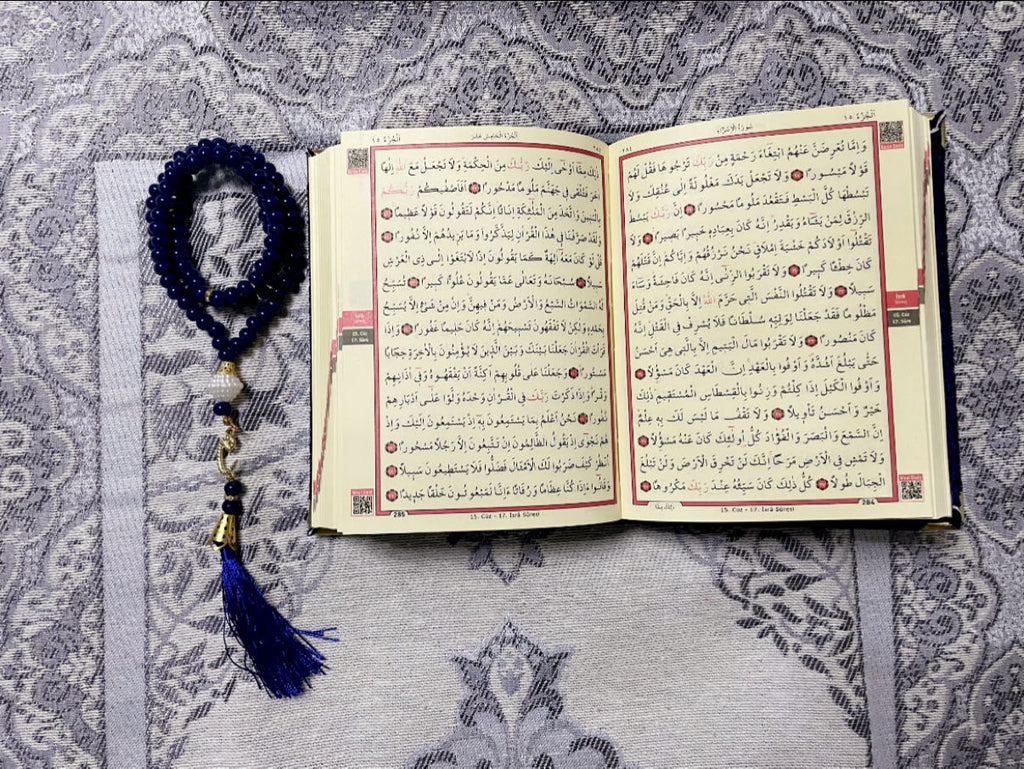 اَلْجُزْءُ ١٥
سُورَةُ الْاِسْرَاءِ
٢٨٤
وَاِمَّا تُعْرِضَنَّ عَنْهُمُ ابْتِغَٓاءَ رَحْمَةٍ مِنْ رَبِّكَ تَرْجُوهَا فَقُلْ لَهُمْ
قَوْلًا مَيْسُورًا وَلَا تَجْعَلْ يَدَكَ مَغْلُولَةً اِلٰى عُنُقِكَ وَلَا
تَبْسُطْهَا كُلَّ الْبَسْطِ فَتَقْعُدَ مَلُومًا مَحْسُورًا اِنَّ رَبَّكَ يَبْسُطُ
الرِّزْقَ لِمَنْ يَشَٓاءُ وَيَقْدِرُ اِنَّهُ كَانَ بِعِبَادِهِ خَبِيرًا بَصِيرًا وَلَا
تَقْتُلُٓوا اَوْلَادَكُمْ خَشْيَةَ اِمْلَاقٍ نَحْنُ نَرْزُقُهُمْ وَاِيَّاكُمْ اِنَّ قَتْلَهُمْ
كَانَ خِطْـًٔا كَبِيرًا وَلَا تَقْرَبُوا الزِّنٰٓى اِنَّهُ كَانَ فَاحِشَةً وَسَٓاءَ
سَبِيلًا وَلَا تَقْتُلُوا النَّفْسَ الَّتِي حَرَّمَ اللّٰهُ اِلَّا بِالْحَقِّ وَمَنْ قُتِلَ
مَظْلُومًا فَقَدْ جَعَلْنَا لِوَلِيِّهِ سُلْطَانًا فَلَا يُسْرِفْ فِي الْقَتْلِ اِنَّهُ
كَانَ مَنْصُورًا وَلَا تَقْرَبُوا مَالَ الْيَتِيمِ اِلَّا بِالَّتِي هِيَ اَحْسَنُ
حَتّٰى يَبْلُغَ اَشُدَّهُ وَاَوْفُوا بِالْعَهْدِ اِنَّ الْعَهْدَ كَانَ مَسْؤُلًا
وَاَوْفُوا الْكَيْلَ اِذَا كِلْتُمْ وَزِنُوا بِالْقِسْطَاسِ الْمُسْتَقِيمِ ذٰلِكَ
خَيْرٌ وَاَحْسَنُ تَأْوِيلًا وَلَا تَقْفُ مَا لَيْسَ لَكَ بِهِ عِلْمٌ
اِنَّ السَّمْعَ وَالْبَصَرَ وَالْفُؤٰادَ كُلُّ اُو۬لٰٓئِكَ كَانَ عَنْهُ مَسْؤُلًا
وَلَا تَمْشِ فِي الْاَرْضِ مَرَحًا اِنَّكَ لَنْ تَخْرِقَ الْاَرْضَ وَلَنْ تَبْلُغَ
الْجِبَالَ طُولًا كُلُّ ذٰلِكَ كَانَ سَيِّئُهُ عِنْدَ رَبِّكَ مَكْرُوهًا
ذٰلِكَ مِمَّٓا
15. Cüz - 17. İsrâ Sûresi
284
İsrâ
Sûresi
15. Cüz
17. Sûre
اَلْجُزْءُ الْخَامِسُ عَشَرَ
اَلْجُزْءُ ١٥
٢٨٥
ذٰلِكَ مِمَّٓا اَوْحٰٓى اِلَيْكَ رَبُّكَ مِنَ الْحِكْمَةِ وَلَا تَجْعَلْ مَعَ اللّٰهِ اِلٰهًا
اٰخَرَ فَتُلْقٰى فِي جَهَنَّمَ مَلُومًا مَدْحُورًا اَفَاَصْفٰيكُمْ رَبُّكُمْ
بِالْبَنِينَ وَاتَّخَذَ مِنَ الْمَلٰٓئِكَةِ اِنَاثًا اِنَّكُمْ لَتَقُولُونَ قَوْلًا عَظِيمًا
وَلَقَدْ صَرَّفْنَا فِي هٰذَا الْقُرْاٰنِ لِيَذَّكَّرُوا وَمَا يَزِيدُهُمْ اِلَّا نُفُورًا
قُلْ لَوْ كَانَ مَعَهُٓ اٰلِهَةٌ كَمَا يَقُولُونَ اِذًا لَابْتَغَوْا اِلٰى ذِي الْعَرْشِ
سَبِيلًا سُبْحَانَهُ وَتَعَالٰى عَمَّا يَقُولُونَ عُلُوًّا كَبِيرًا تُسَبِّحُ
لَهُ السَّمٰوَاتُ السَّبْعُ وَالْاَرْضُ وَمَنْ فِيهِنَّ وَاِنْ مِنْ شَيْءٍ اِلَّا يُسَبِّحُ
بِحَمْدِهِ وَلٰكِنْ لَا تَفْقَهُونَ تَسْبِيحَهُمْ اِنَّهُ كَانَ حَلِيمًا غَفُورًا وَاِذَا
قَرَأْتَ الْقُرْاٰنَ جَعَلْنَا بَيْنَكَ وَبَيْنَ الَّذِينَ لَا يُؤْمِنُونَ بِالْاٰخِرَةِ حِجَابًا
مَسْتُورًا وَجَعَلْنَا عَلٰى قُلُوبِهِمْ اَكِنَّةً اَنْ يَفْقَهُوهُ وَفِٓي اٰذَانِهِمْ
وَقْرًا وَاِذَا ذَكَرْتَ رَبَّكَ فِي الْقُرْاٰنِ وَحْدَهُ وَلَّوْا عَلٰٓى اَدْبَارِهِمْ
نُفُورًا نَحْنُ اَعْلَمُ بِمَا يَسْتَمِعُونَ بِهِٓ اِذْ يَسْتَمِعُونَ اِلَيْكَ وَاِذْ
هُمْ نَجْوٰٓى اِذْ يَقُولُ الظَّالِمُونَ اِنْ تَتَّبِعُونَ اِلَّا رَجُلًا مَسْحُورًا
اُنْظُرْ كَيْفَ ضَرَبُوا لَكَ الْاَمْثَالَ فَضَلُّوا فَلَا يَسْتَطِيعُونَ سَبِيلًا
وَقَالُٓوا ءَاِذَا كُنَّا عِظَامًا وَرُفَاتًا ءَاِنَّا لَمَبْعُوثُونَ خَلْقًا جَدِيدًا
285
15. Cüz - 17. İsrâ Sûresi
15. Cüz
17. Sûre